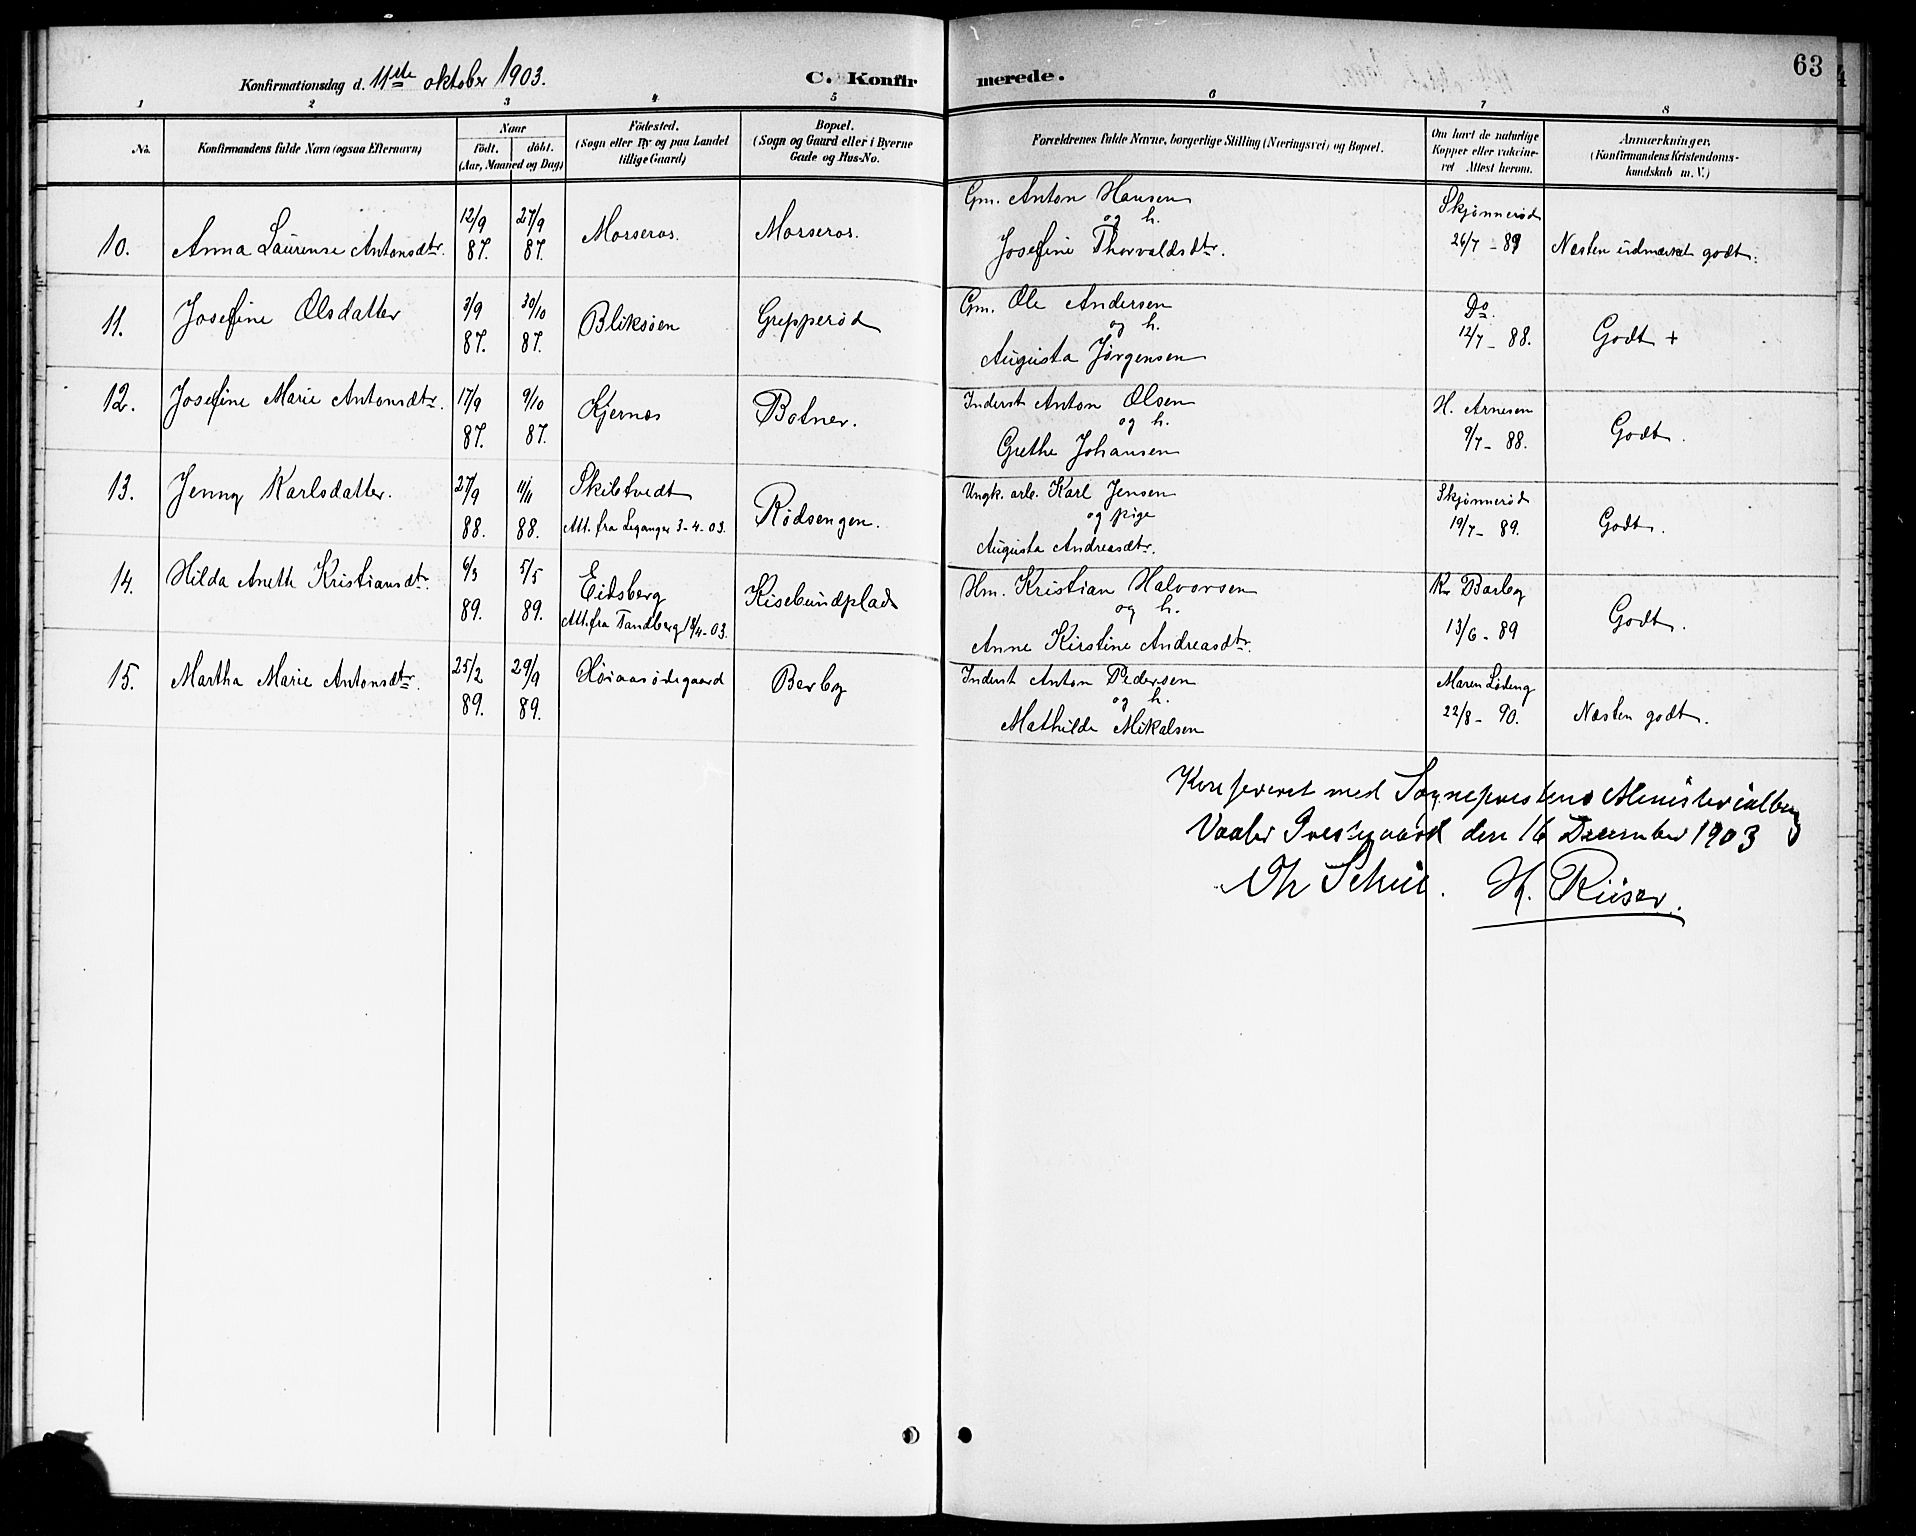 63
Konfirmationsdag d. 11te oktober 1903.
C. Konfirmerede.
1 2 3 4 5 6 7 8
No.
Konfirmandens fulde Navn (ogsaa Efternavn)
Naar
födt. döbt.
(Aar, Maaned og Dag)
Födested.
(Sogn eller By og paa Landet
tillige Gaard)
Bopæl.
(Sogn og Gaard eller i Byerne
Gade og Hus-No.
Forældrenes fulde Navne, borgerlige Stilling (Næringsvei) og Bopæl.
Om havt de naturlige
Kopper eller vakcine-
ret Attest herom.
Anmærkninger.
(Konfirmandens Kristendoms-
kundskab m. V.)
10. Anna Laurense Antonsdtr. 12/9 87. 27/9 87. Morseros. Morseros.
Gm. Anton Hansen
og h.
Josefine Thorvaldsdtr.
Skjønnerød
26/7 - 89
Næsten udmærket godt.
11. Josefine Olsdatter 3/9 87. 30/10 87. Bliksøen Grepperød
Gm. Ole Andersen
og h.
Augusta Jørgensen
Do.
12/7 - 88.
Godt +
12. Josefine Marie Antonsdtr. 17/9 87. 9/10 87. Kjernes Botner.
Inderst Anton Olsen
og h.
Grethe Johansen
H. Arnesen
9/7 - 88.
Godt.
13. Jenny Karlsdatter. 27/9 88. 11/11 88. Skibtvedt
Att. fra Leganger 3-4-03.
Rødsengen.
Ungk. arb. Karl Jensen
og pige
Augusta Andreasdtr.
Skjønnerød
19/7 - 89.
Godt.
14. Hilda Aneth Kristiansdtr. 6/3 89. 5/5 89. Eidsberg
Att. fra Tandberg /4-03.
Kisebundplads
Hm. Kristian Halvorsen
og h.
Anne Kirstine Andreasdtr.
Kr Barby
13/6 - 89
Godt.
15. Martha Marie Antonsdtr. 25/2 89. 29/9 89. Høiaasødegaard Berby
Inderst Anton Pedersen
og h.
Mathilde Mikalsen
Maren Lødeng
22/8 - 90.
Næsten godt.
Konfereret med Sognepræstens Ministerialbog
Vaaler Prestegaard den 16 December 1903
Th Schie. H. Riiser.